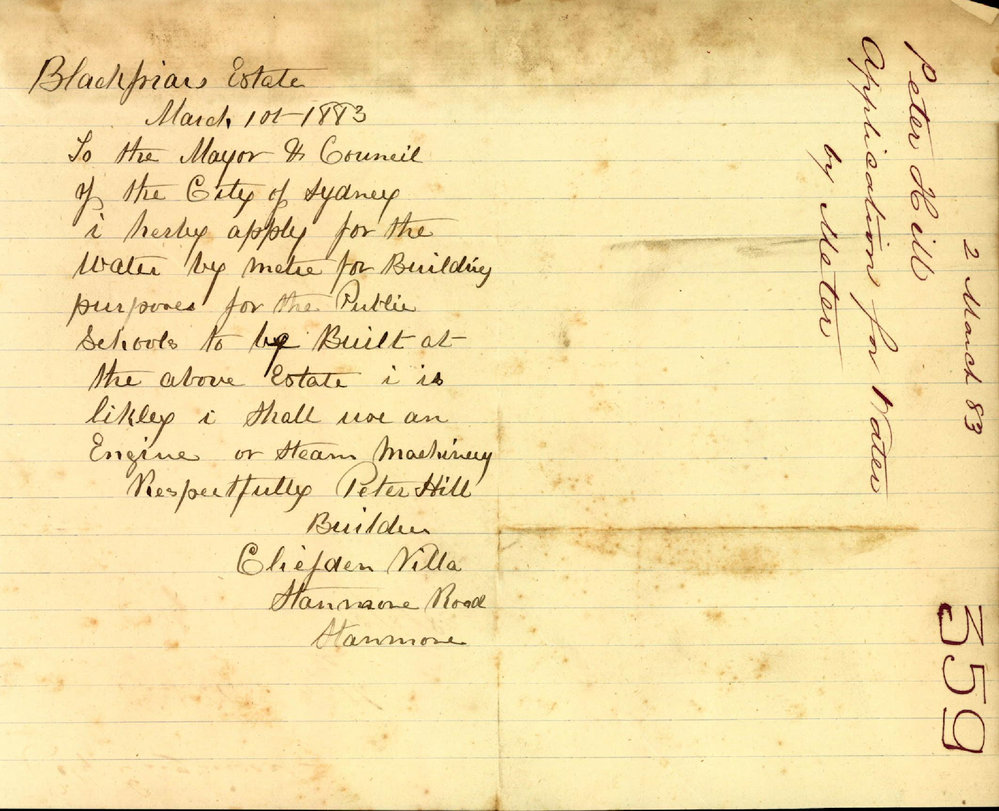 Blackfriars Estate
March 1st 1883
To the Mayor & Council
of the City of Sydney
i herby apply for the
Water by metre for Building
purposes for the Public
Schools to be Built at
the above Estate i is
likley i shall use an
Engine or Steam Machinery
Respectfully Peter Hill
Builder
Cliefden Villa
Stanmore Road
Stanmore
Peter Hill
Application for Water
by Meter
2 March 83
359